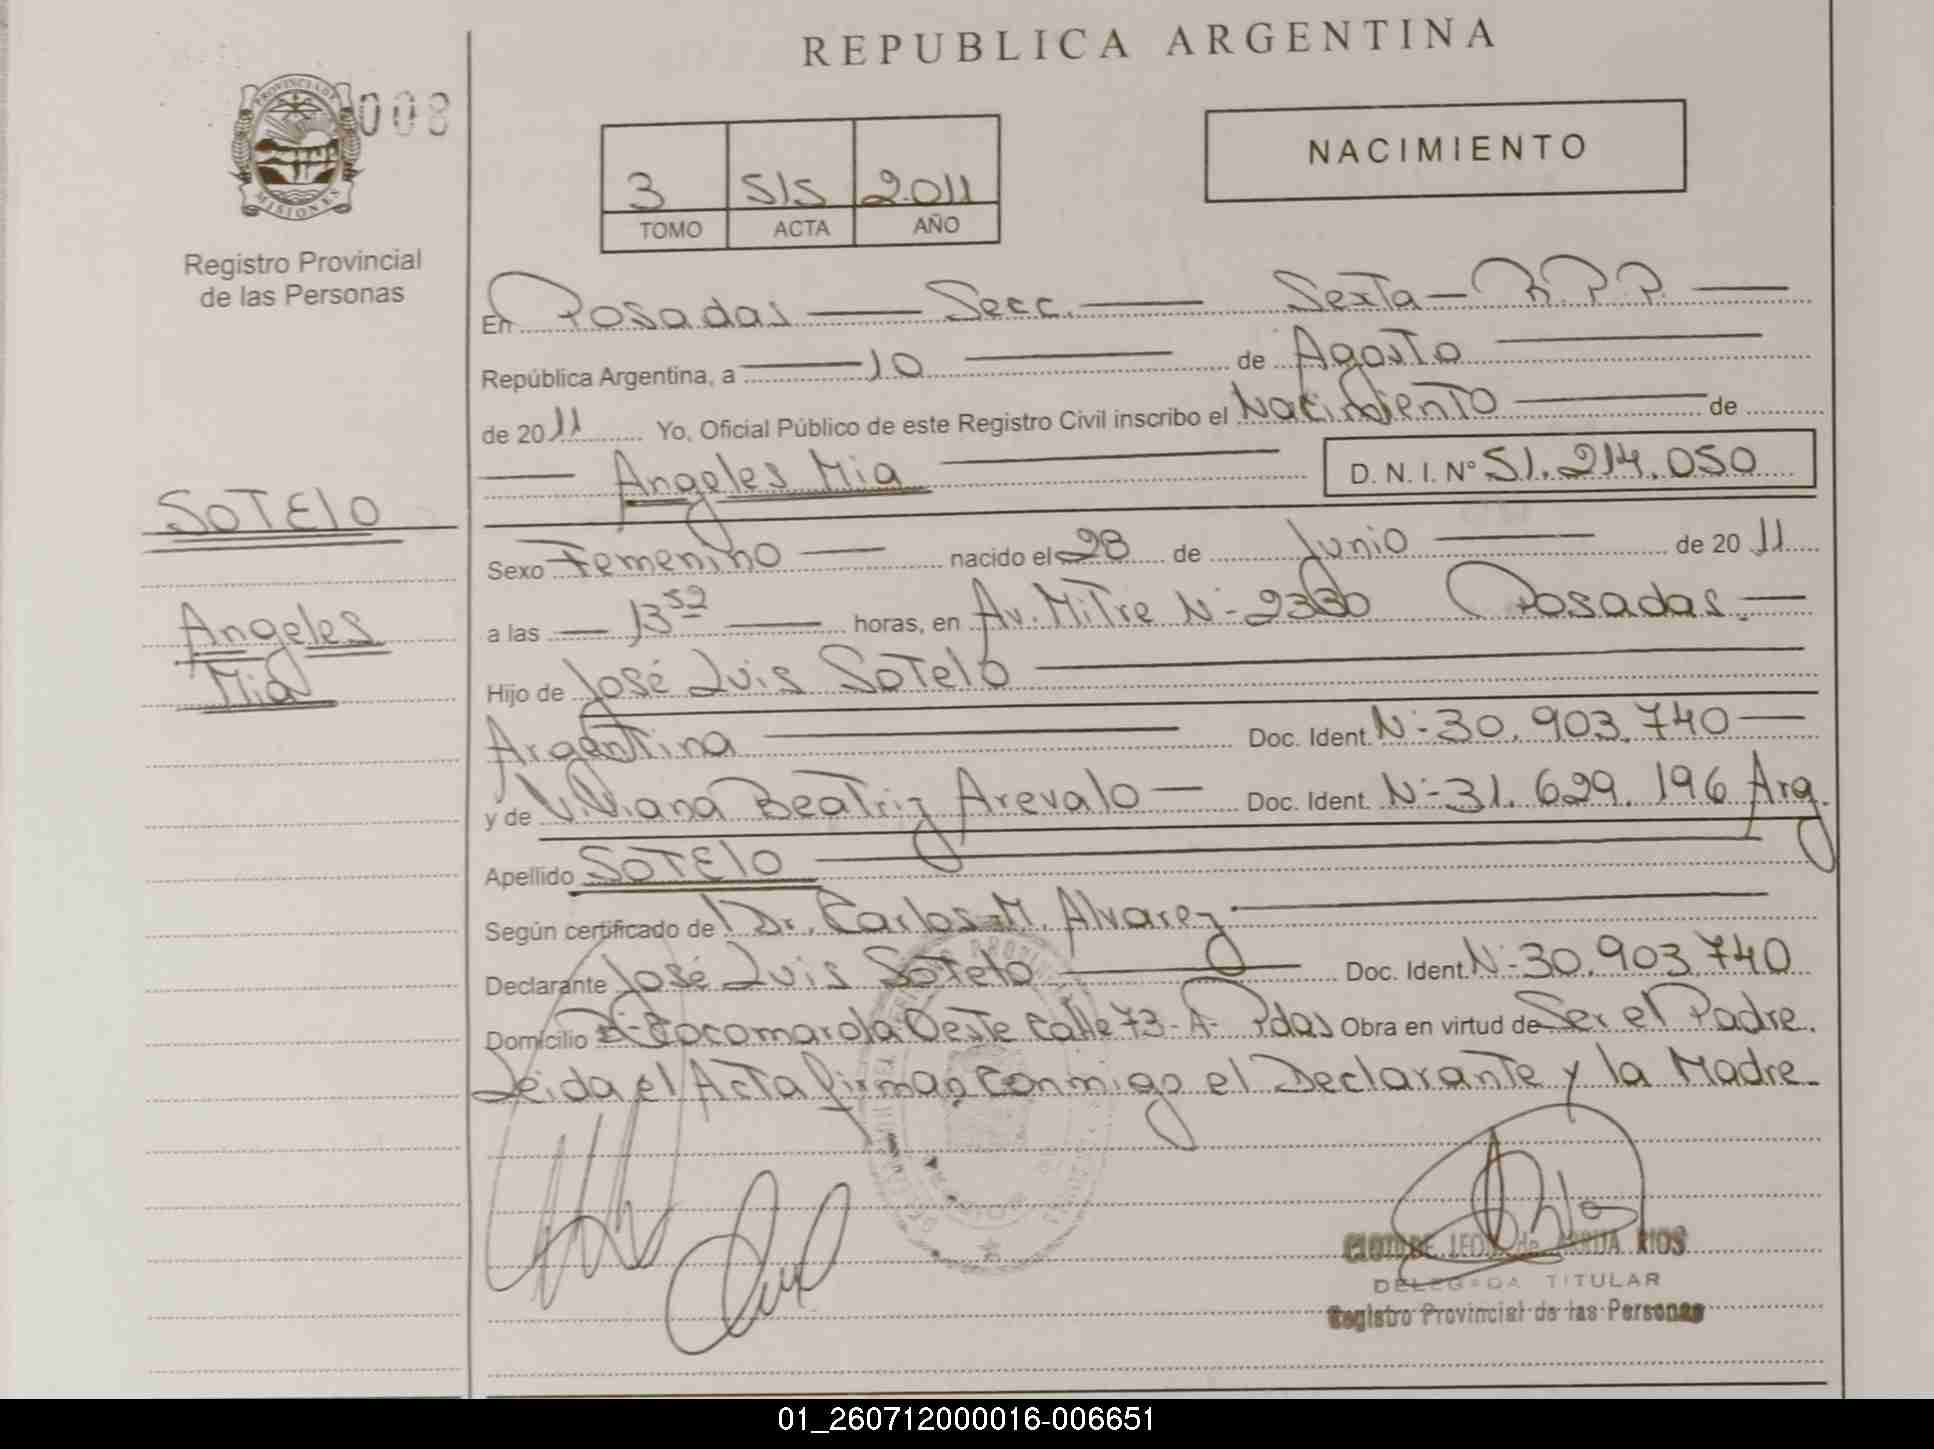 REPUBLICA ARGENTINA
PROVINCIA DE
MISIONES
008
Registro Provincial
de las Personas
3 515 2.011
TOMO ACTA AÑO
NACIMIENTO
En Posadas — Secc. — Sexta — R.P.P. —
República Argentina, a — 10 — de Agosto —
de 2011 Yo, Oficial Público de este Registro Civil inscribo el Nacimiento — de
— Angeles Mia — D. N. I. Nº 51.214.050
SOTELO
Angeles
Mia
Sexo Femenino — nacido el 28 de Junio — de 2011
a las — 13 52 — horas, en Av. Mitre Nº 2330 Posadas. —
Hijo de José Luis Sotelo —
Argentina — Doc. Ident. Nº 30.903.740 —
y de Viviana Beatriz Arevalo — Doc. Ident. Nº 31.629.196 Arg.
Apellido SOTELO —
Según certificado de Dr. Carlos M. Alvarez —
Declarante José Luis Sotelo — Doc. Ident. Nº 30.903.740
Domicilio Cocomarola Oeste Calle 73-A- Pdas Obra en virtud de Ser el Padre.
Leida el Acta firman conmigo el Declarante y la Madre.
RIOS
DELEGADA TITULAR
Registro Provincial de las Personas
01_260712000016-006651